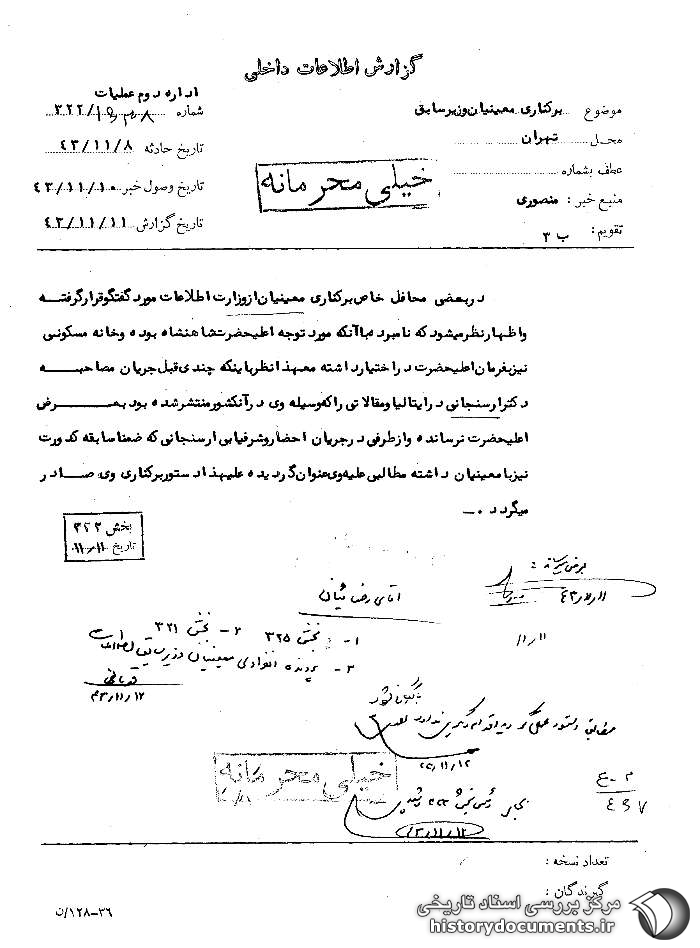 گزارش اطلاعات داخلی
موضوع برکناری معینیان وزیر سابق
محل تهران
عطف بشماره
منبع خبر : منصوری
تقویم : ب ۳
اداره دوم عملیات
شماره ۳۲۲/
تاریخ حادثه ۴۳/۱۱/۸
تاریخ وصول خبر ۴۳/۱۱/۱۰
تاریخ گزارش ۴۳/۱۱/۱۱
خیلی محرمانه
در بعضی محافل خاص برکناری معینیان از وزارت اطلاعات مورد گفتگو قرار گرفته
و اظهار نظر میشود که نامبرده با آنکه مورد توجه اعلیحضرت شاهنشاه بوده و خانه مسکونی
نیز بفرمان اعلیحضرت در اختیار داشته معهذا نظر باینکه چندی قبل جریان مصاحبه
دکتر ارسنجانی در ایتالیا و مقالاتی را که وسیله وی در آن کشور منتشر شده بود بعرض
اعلیحضرت نرسانده و از طرفی در جریان احضار و شرفیابی ارسنجانی که ضمنا سابقه کدورت
نیز با معینیان داشته مطالبی علیه وی عنوان گردیده علیهذا دستور برکناری وی صادر
میگردد ۰ـ
بخش ۳۲۲
تاریخ ۱۱/۱۱
بعرض میرسد :
۴۳/۱۱/۱۱
آقای رضائیان
۱۱/۱۱
۱- بخش ۳۲۵ ۲- بخش ۳۲۱
۳- پرونده انفرادی معینیان وزیر سابق اطلاعات
۴۳/۱۱/۱۲
بایگانی شود
مطابق دستور عمل گردید اقدام دیگری ندارد
۴۳/۱۱/۱۲
خیلی محرمانه
۴۳/۱۱/۱۲
م-ع
۴۹۷
تعداد نسخه :
گیرندگان :
۱۲۸-۳۶/ن
مرکز بررسی اسناد تاریخی
historydocuments.ir